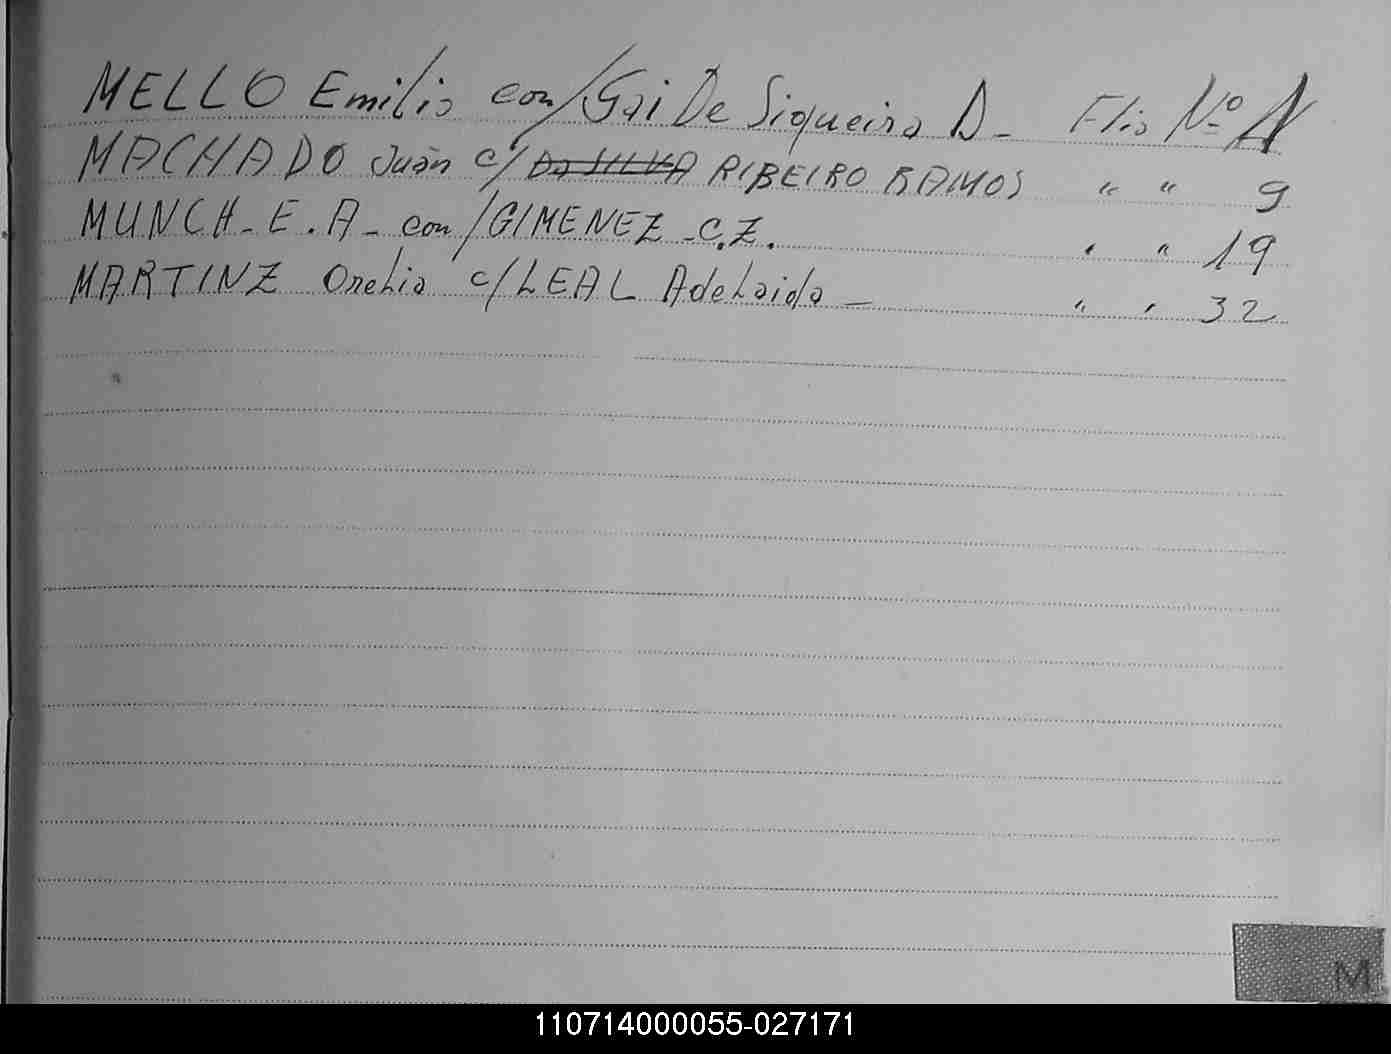 MELLO Emilio con/Gai De Siqueira D- Flio Nº
MACHADO Juan c/ Da SILVA RIBEIRO RAMOS " " 9
MUNCH-E.A- con/GIMENEZ-C.Z. " " 19
MARTINZ Orelio c/LEAL Adelaida- " " 32
M
110714000055-027171